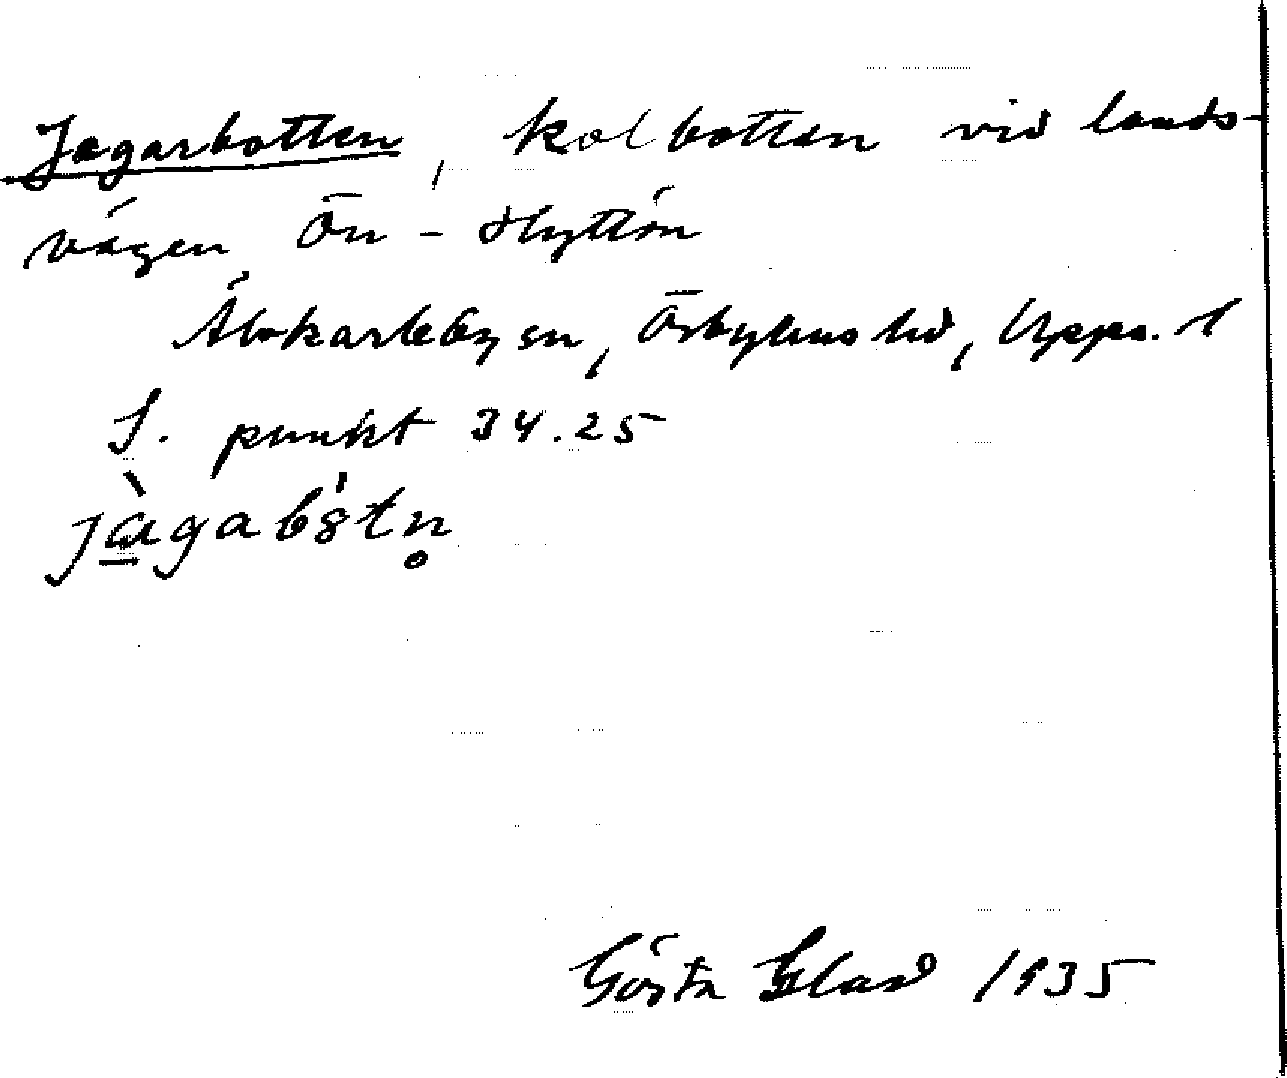 Jagarbotten, kolbotten vid lands-
vägen Ön - Hyttön
Älvkarleby sn, Örbyhus hd, Upps. l
S. punkt 34.25
jàgabåtn̥
Gösta Blad 1935